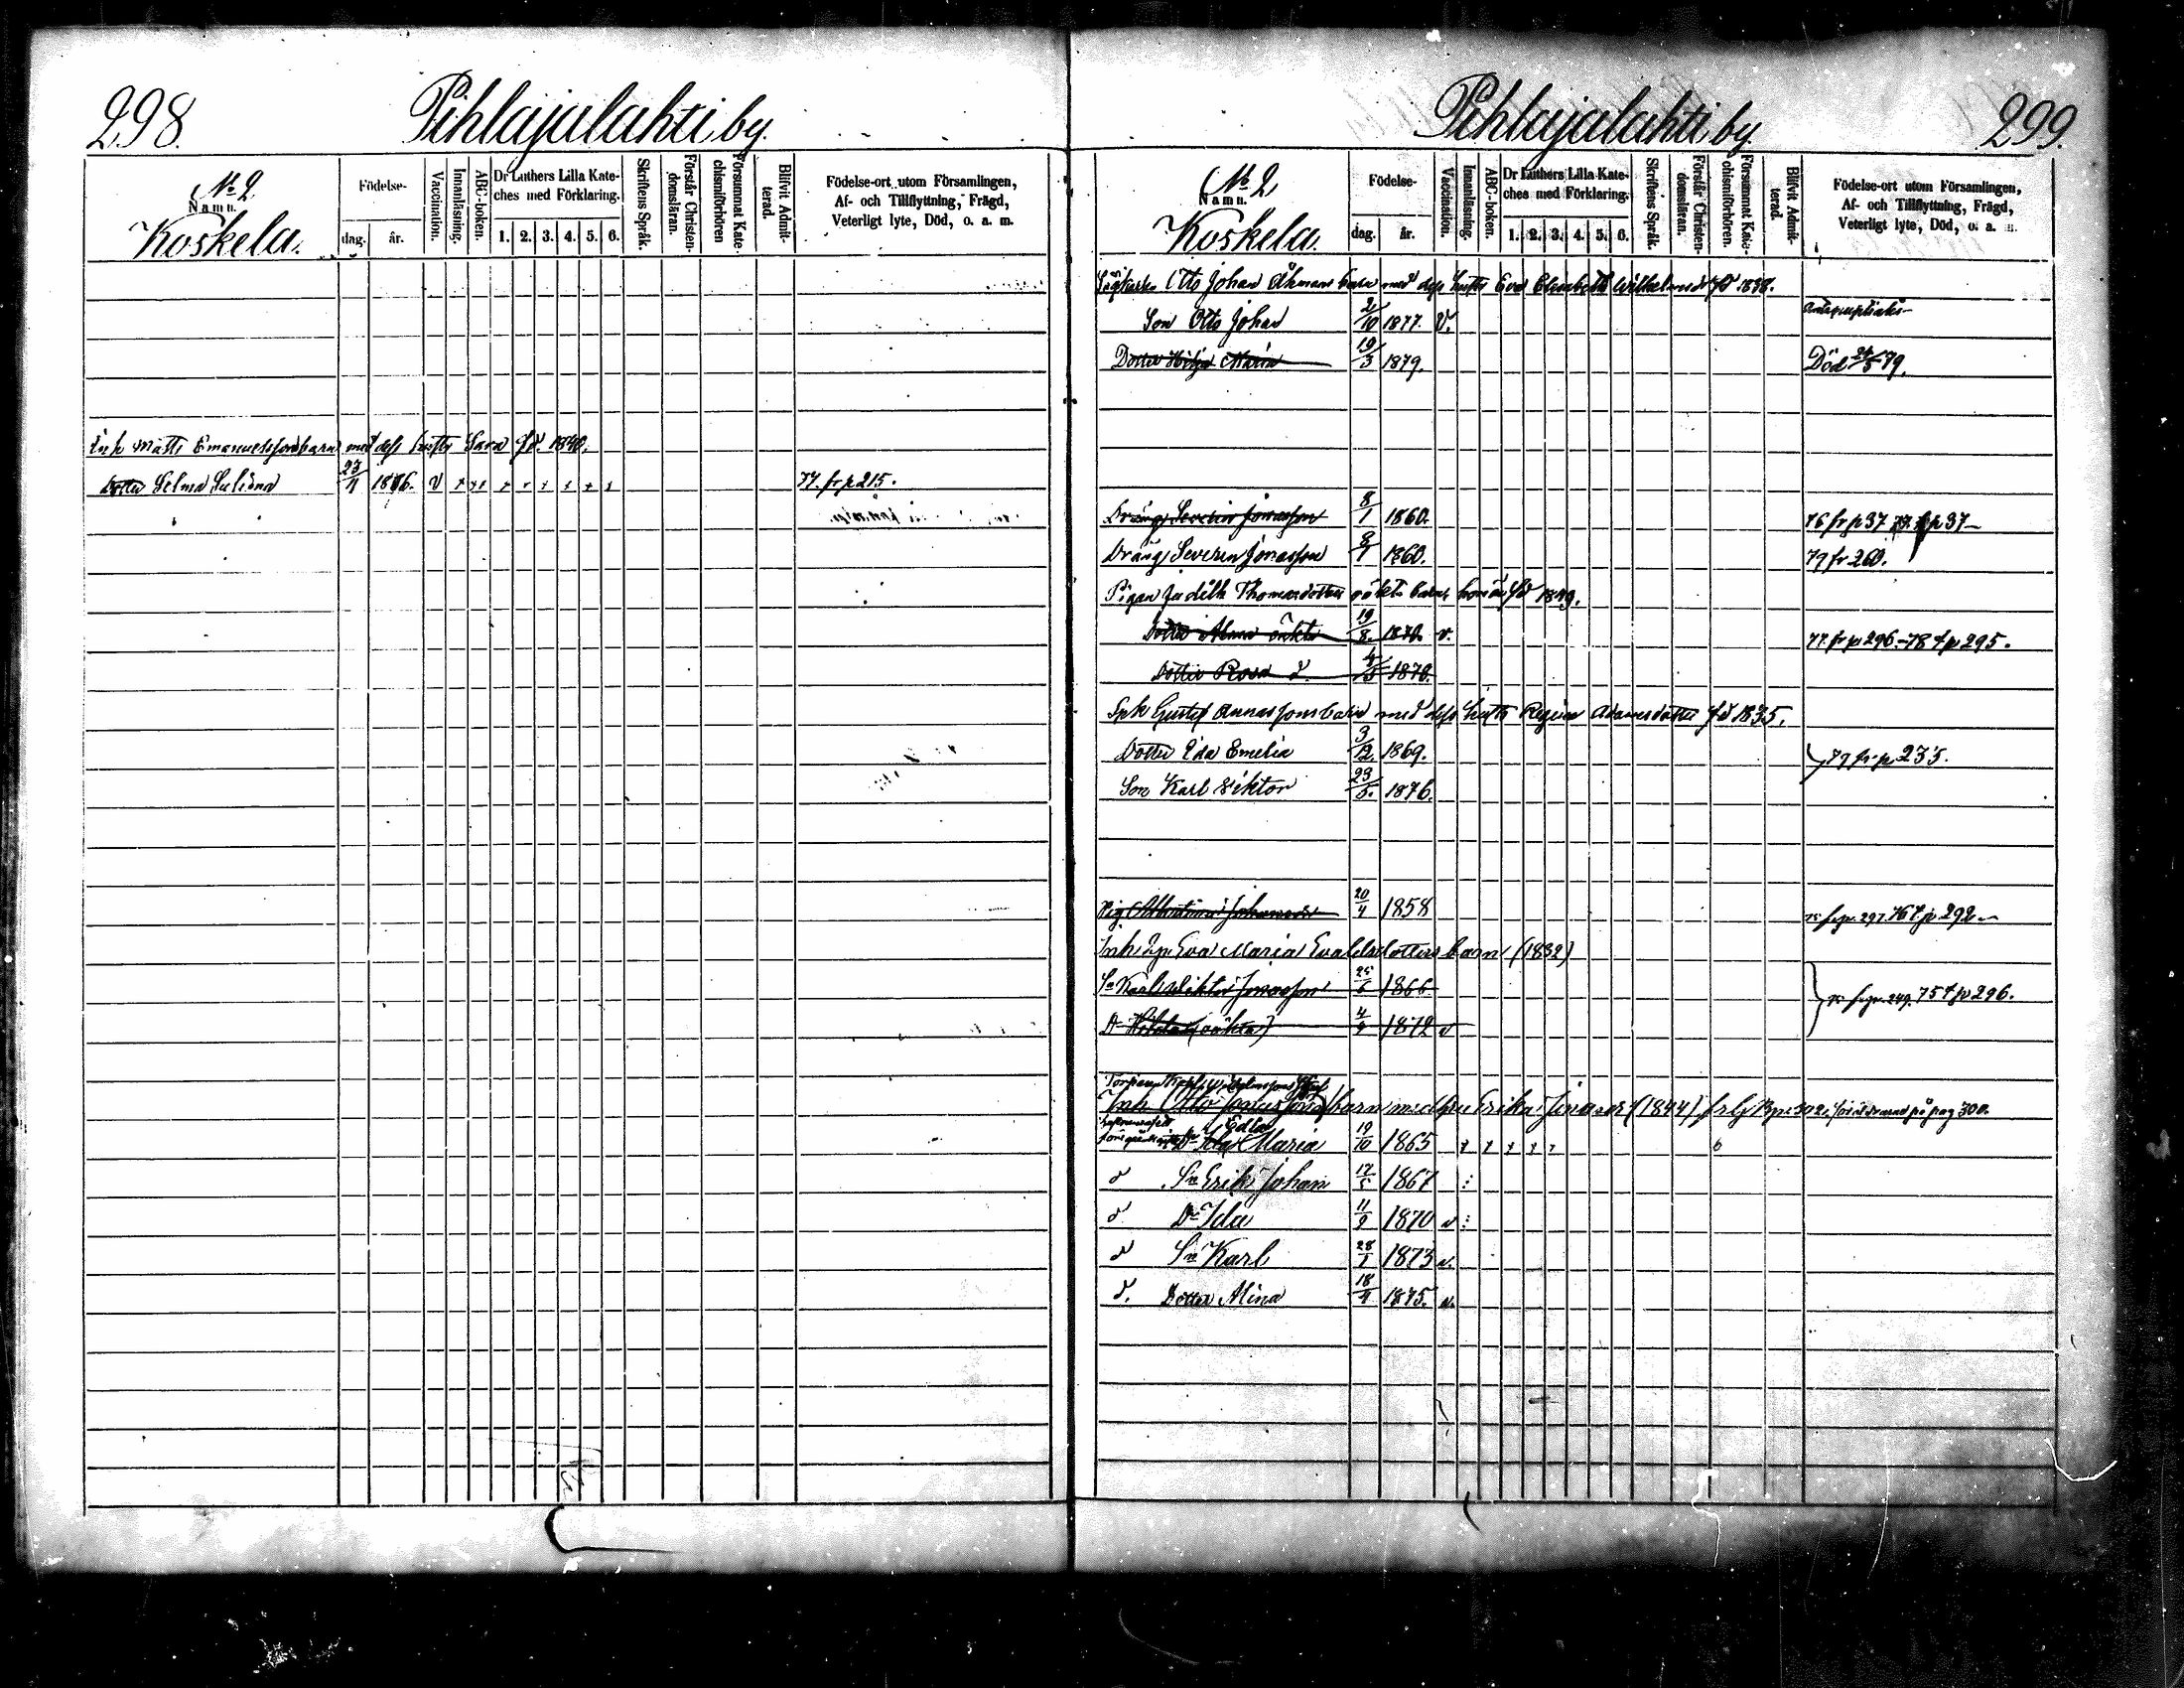 298.
Pihlajalahti by.
No 2.
Namn.
Koskela.
Födelse-
dag.
år.
Vaccination.
Innanläsning.
ABC-boken.
Dr Luthers Lilla Kate-
ches med Förklaring.
1. 2. 3. 4. 5. 6.
Skriftens Språk.
Förstår Christen-
domsläran.
Försummat Kate-
chismiförhören
Blifvit Admit-
terad.
Födelse-ort utom Församlingen,
Af- och Tillflyttning, Frägd,
Veterligt lyte, Död, o. a. m.
Inh Matts Emanuelssons barn med dess hustru Sara fd. 1840.
Dotter Selma 23/11 1876. v x x x x x x x x x 77. fr p 215.
Pihlajalahti by.
299.
No 2
Namn.
Koskela.
Födelse-
dag.
år.
Vaccination.
Innanläsning.
ABC-boken.
Dr Luthers Lilla Kate-
ches med Förklaring.
1. 2. 3. 4. 5. 6.
Skriftens Språk.
Förstår Christen-
domsläran.
Försummat Kate-
chismiförhören.
Blifvit Admit-
terad.
Födelse-ort utom Församlingen,
Af- och Tillflyttning, Frägd,
Veterligt lyte, Död, o. a. m.
Otto Johan Åhmans barn med dess hustru Eva Elisabeth fd 1838.
Son Otto Johan 2/10 1877. v.
Dotter Hilja Maria 19/3 1879. Död 24/5 79.
Dräng Severin Jonasson 8/1 1860. 76 fr p 37 p 37
Dräng Severin Jonasson 8/1 1860. 79 fr 260.
Pigan Judith Thomasdotters oäkta barn fd 1849.
Dotter Alma oäkta 19/8. 1870. v. 77. fr p 296.-78 t p 295.
Dotter Rosa 4/5 1870.
Gustaf barn med dess hustru Regina Adamsdotter fd 1835.
Dotter Ida Emelia 3/12. 1869. } 79 fr p 235.
Son Karl Viktor 23/5. 1876.
Pig 20/4 1858 75 fr p. 297. 76 t p 292
Inh Eva Maria Evaldsdotters barn (1832)
Sn Karl Viktor Jonasson 25/6 1866 } 75 fr p. 249. 75 t p 296.
Dr Hilda (oäkta) 4/9 1872 v
Torparen Karl
Inh Otto barn med hu Erika (1844) på pag 300.
Edla
Dr Ida Maria 19/10 1865 x x x x x 6
d Sn Erik Johan 17/5 1867
d Dr Ida 11/9 1870 v
d Sn Karl 28/1 1873 v.
d. Dotter Alina 18/4 1875. v.